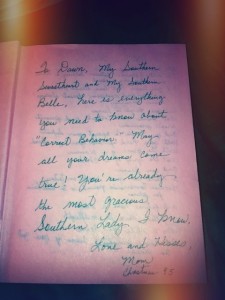 To Dawn, My Southern
Sweetheart and My Southern
Belle, Here is everything
you need to know about
"Correct Behavior." May
all your dreams come
true! You're already
the most gracious
Southern Lady I know.
Love and Kisses
Mom
95